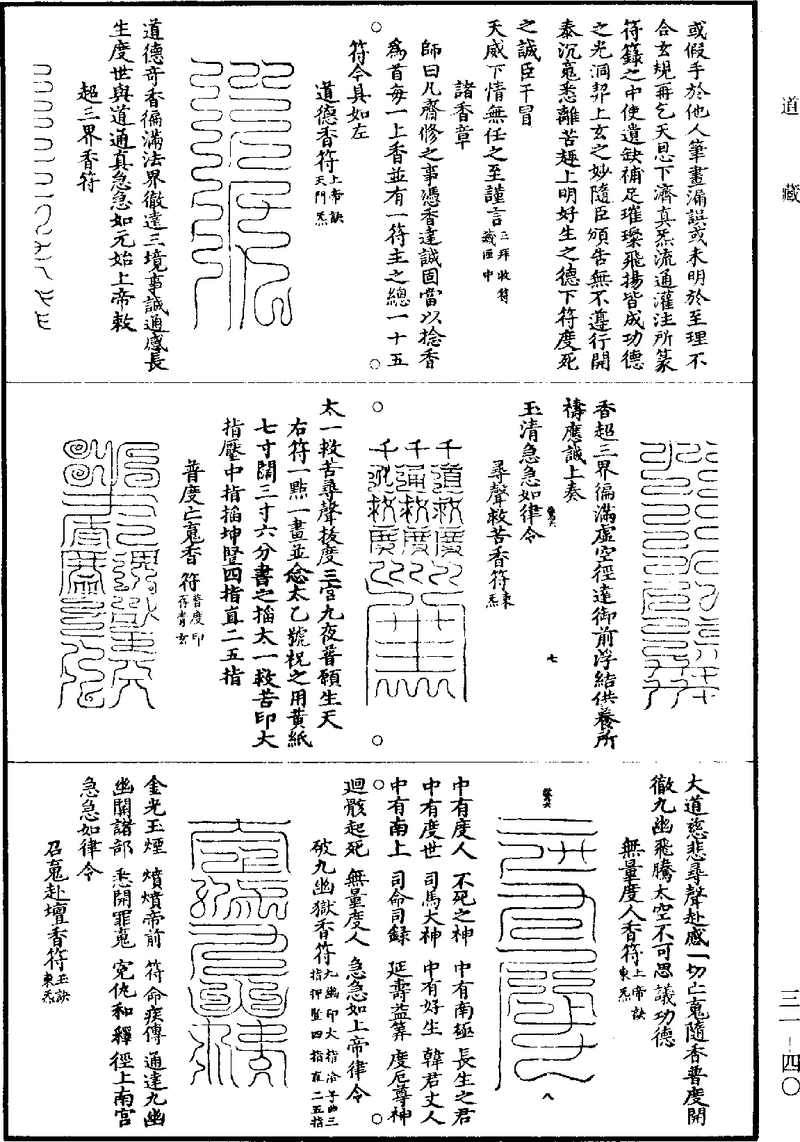 道藏
三一－四〇
或假手於他人筆畫漏誤或未明於至理不
合玄規再乞天恩下濟真炁流通灌注所篆
符籙之中使遺缺補足璀璨飛揚皆成功德
之光洞契上玄之妙隨臣頒告無不遵行開
泰沉䰟悉離苦趣上明好生之德下符度死
之誠臣干冒
天威下情無任之至謹言三拜收符藏匣中
諸香章
師曰凡齋修之事憑香達誠固當以捻香
為首每一上香並有一符主之總一十五
符今具如左
道德香符上帝訣天門炁
道德奇香徧滿法界徹達三境事誠通感長
生度世與道通真急急如元始上帝敕
超三界香符
香超三界徧滿虛空徑達御前浮結供養所
禱應誠上奏
玉清急急如律令
七
尋聲救苦香符東炁
太一救苦尋聲拔度三官九夜普願生天
右符一點一畫並念太乙號祝之用黃紙
七寸闊三寸六分書之掐太一救苦印大
指壓中指掐坤豎四指直二五指
普度亡䰟香符普度印存青玄
大道慈悲尋聲赴感一切亡䰟隨香普度開
徹九幽飛騰太空不可思議功德
無量度人香符上帝訣東炁
八
中有度人 不死之神 中有南極 長生之君
中有度世 司馬大神 中有好生 韓君丈人
中有南上 司命司錄 延壽益筭 度厄尊神
迴骸起死 無量度人 急急如上帝律令
破九幽獄香符
金光玉煙 熉熉帝前 符命疾傳 通達九幽
幽關諸部 悉開罪䰟 冤仇和釋 徑上南宮
急急如律令
召䰟赴壇香符玉訣東炁